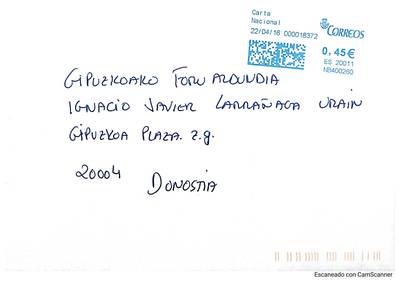 Carta
Nacional
22/04/16 000018372
CORREOS
0,45€
ES 20011
NB400260
GIPUZKOAKO FORU ALDUNDIA
IGNACIO JAVIER LARRAÑAGA URAIN
GIPUZKOA PLAZA. z.g.
20004 DONOSTIA
Escaneado con CamScanner